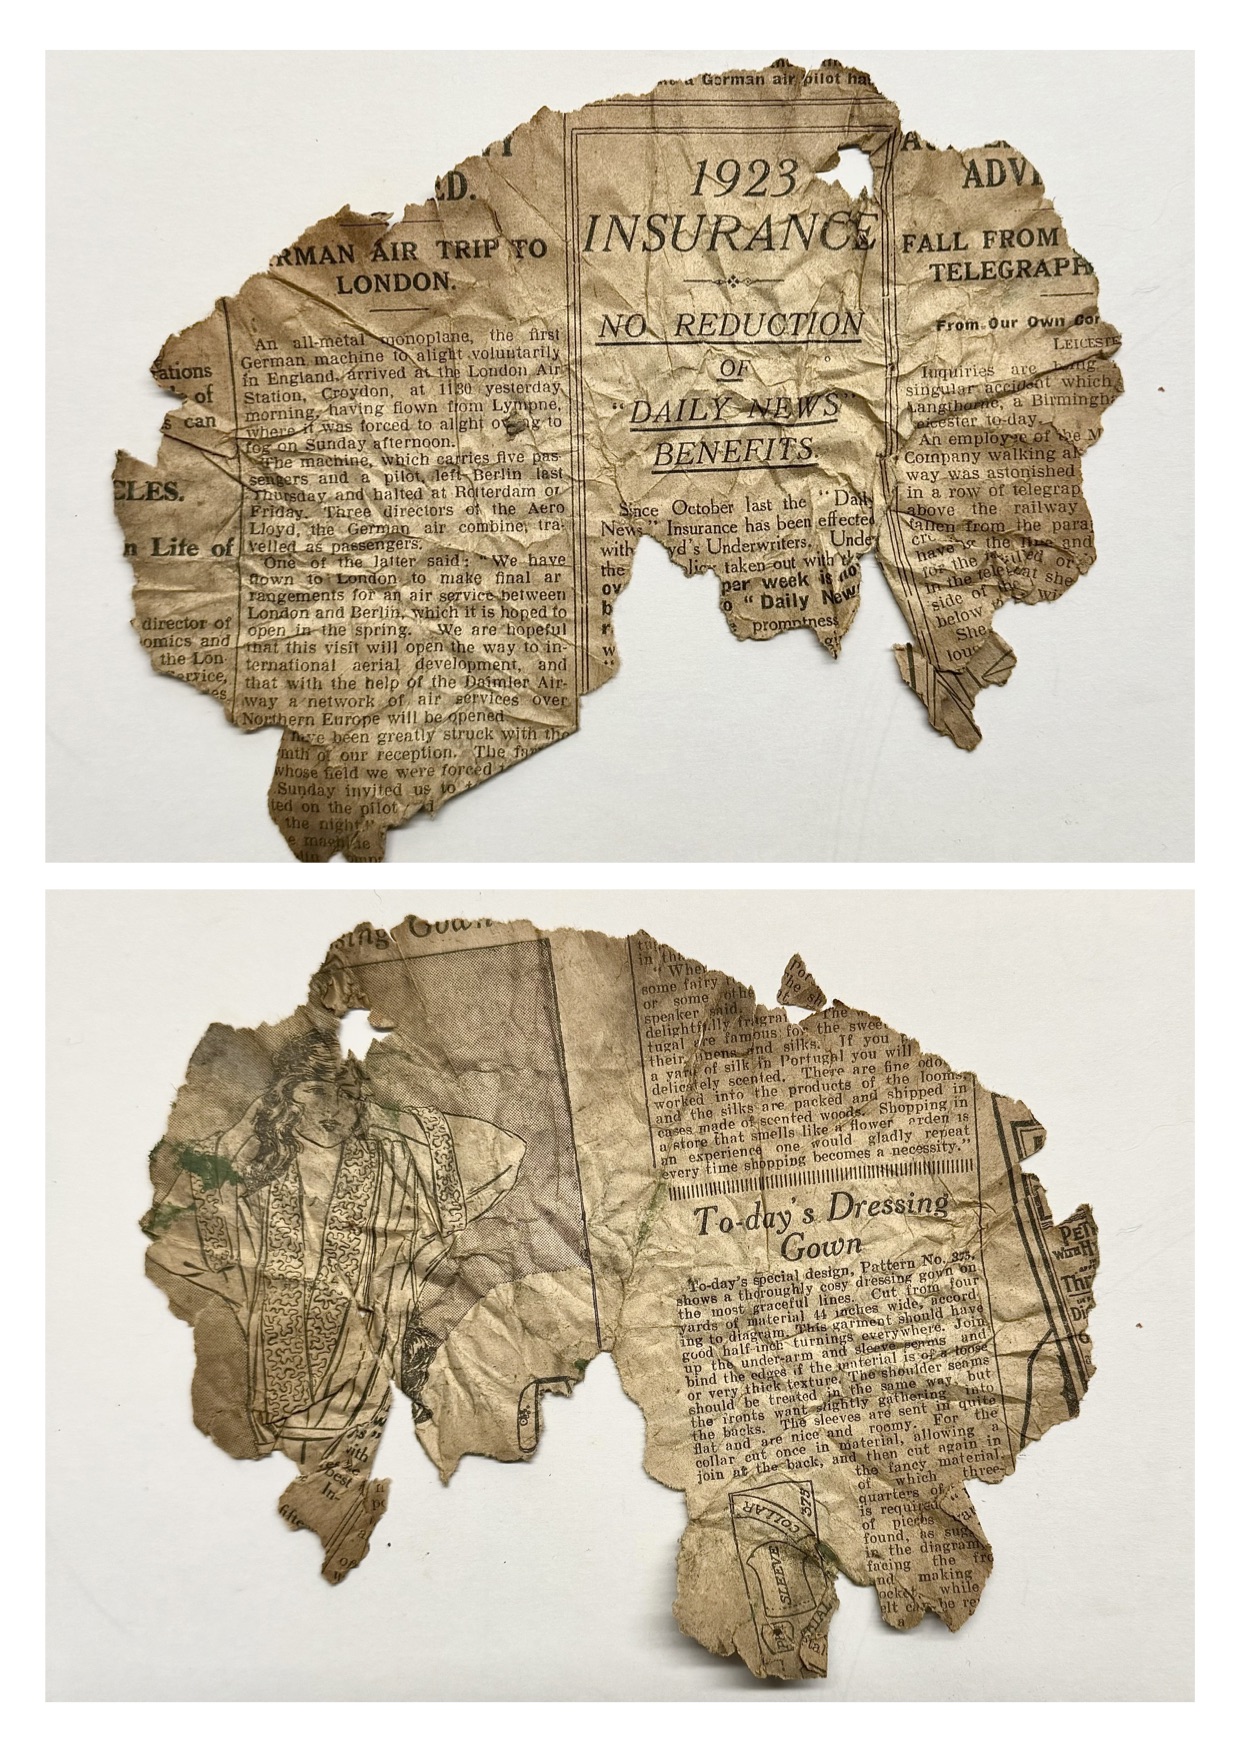 German air pilot
ED.
RMAN AIR TRIP TO
LONDON.
An all-metal monoplane, the first
German machine to alight voluntarily
in England, arrived at the London Air
Station, Croydon, at 11.30 yesterday
morning, having flown from Lympne,
where it was forced to alight owing to
fog on Sunday afternoon.
The machine, which carries five pas-
sengers and a pilot, left Berlin last
Thursday and halted at Rotterdam on
Friday. Three directors of the Aero
Lloyd, the German air combine, tra-
velled as passengers.
One of the latter said: "We have
flown to London to make final ar
rangements for an air service between
London and Berlin, which it is hoped to
open in the spring. We are hopeful
that this visit will open the way to in-
ternational aerial development, and
that with the help of the Daimler Air-
way a network of air services over
Northern Europe will be opened
have been greatly struck with the
mth of our reception. The
whose field we were forced
Sunday invited us to
ted on the pilot
the night."
ations
of
s can
CLES.
n Life of
director of
omics and
the Lon
service,
1923
INSURANCE
NO REDUCTION
OF
"DAILY NEWS"
BENEFITS.
Since October last the "Daily
News" Insurance has been effected
with yd's Underwriters. Unde
the taken out with
per week is
"Daily New
promptness
ADV
FALL FROM
TELEGRAPH
From Our Own Cor
LEICESTE
Inquiries are being
singular accident which
Langthorne, a Birmingh
eicester to-day.
An employee of the M
Company walking al
way was astonished
in a row of telegrap
above the railway
fallen from the para
the line and
have
for the
in the she
side of
below
She
lous
sing Gown
in
"Wher
some fairy
or some othe
speaker said.
delightfully fragra The
tugal are famous for the swee
their linens and silks. If you
a yard of silk in Portugal you will
delicately scented. There are fine odo
worked into the products of the looms,
and the silks are packed and shipped in
cases made of scented woods. Shopping in
a store that smells like a flower arden is
an experience one would gladly repeat
every time shopping becomes a necessity."
To-day's Dressing
Gown
To-day's special design, Pattern No. 375,
shows a thoroughly cosy dressing gown on
the most graceful lines. Cut from four
yards of material 44 inches wide, accord
ing to diagram. This garment should have
good half-inch turnings everywhere. Join
up the under-arm and sleeve seams and
bind the edges if the material is of a loose
or very thick texture. The shoulder seams
should be treated in the same way, but
the fronts want slightly gathering into
the backs. The sleeves are sent in quite
flat and are nice and roomy. For the
collar cut once in material, allowing a
join at the back, and then cut again in
the fancy material,
of which three-
quarters of
is required
of pieces
found, as sug
in the diagram
facing the fr
and making
ocket, while
elt can be re
COLLAR
375
SLEEVE
best
In-